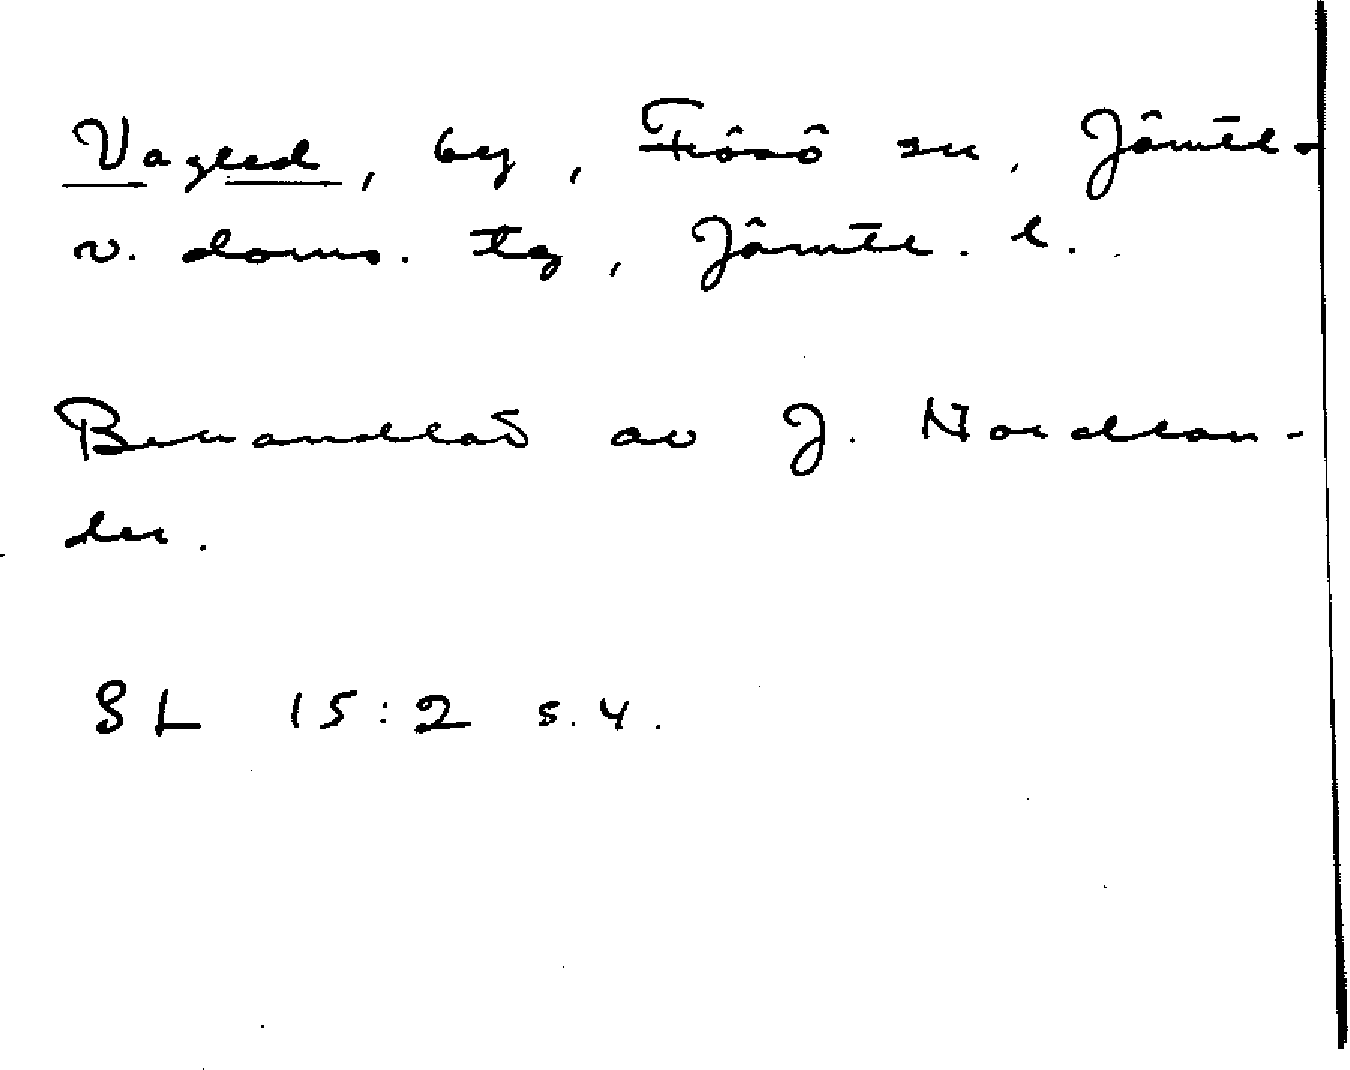 Vagled, by, Frösö sn, Jämtl-
v. doms. tg, Jämtl. l.
Behandlat av J. Nordlan-
der.
SL 15:2 s. 4.